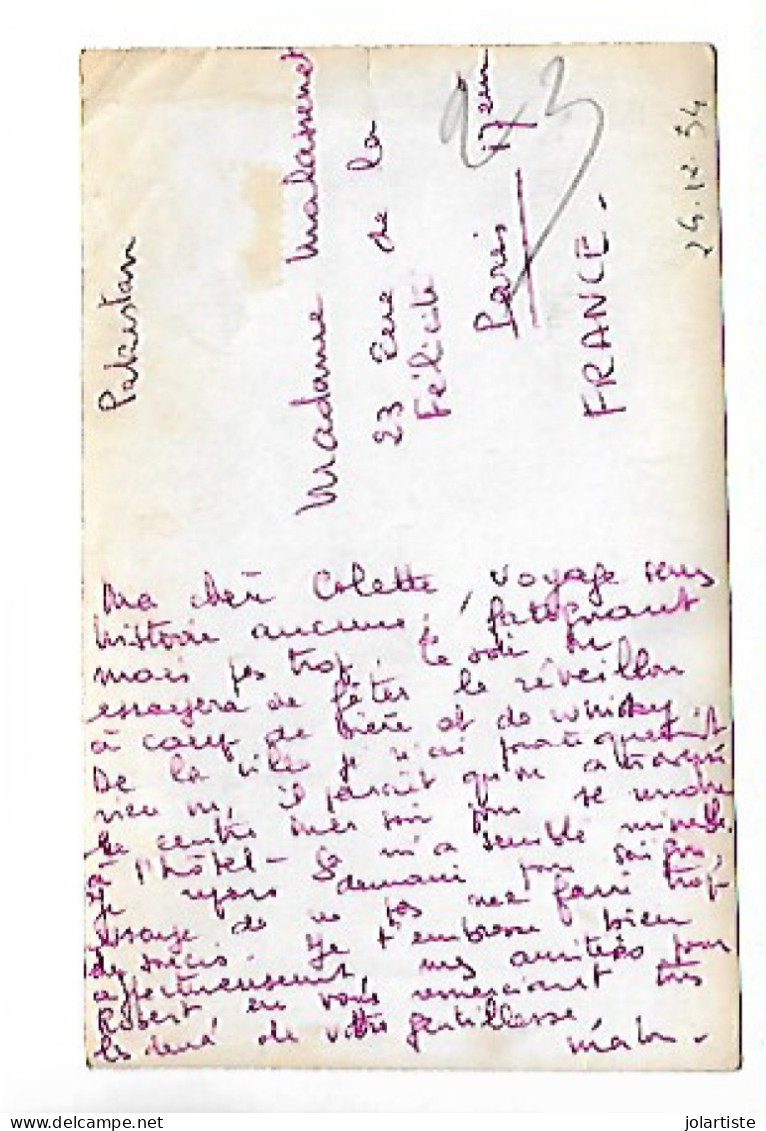 Pakistan
Madame Malassenet
23 Rue de la
Félicité
Paris 17em
FRANCE.
23
24.12.54
Ma cher Colette, voyage sans
histoire aucune, fatiguant
mais pas trop. Ce soir on
essayera de fêter le réveillon
à coup de bière et de whisky
De la ville je n'ai pratiquement
rien vu, il parait qu'on a traversé
le centre mes son pour se rendre
à l'hôtel - Ça m'a semblé minable.
Je repars demain pour Saigon,
essaye de ne pas me faire trop
de soucis. Je t'embrasse bien
affectueusement, mes amitiés pour
Robert, en vous remerciant très
les deux de votre gentillesse
www.delcampe.net
jolartiste